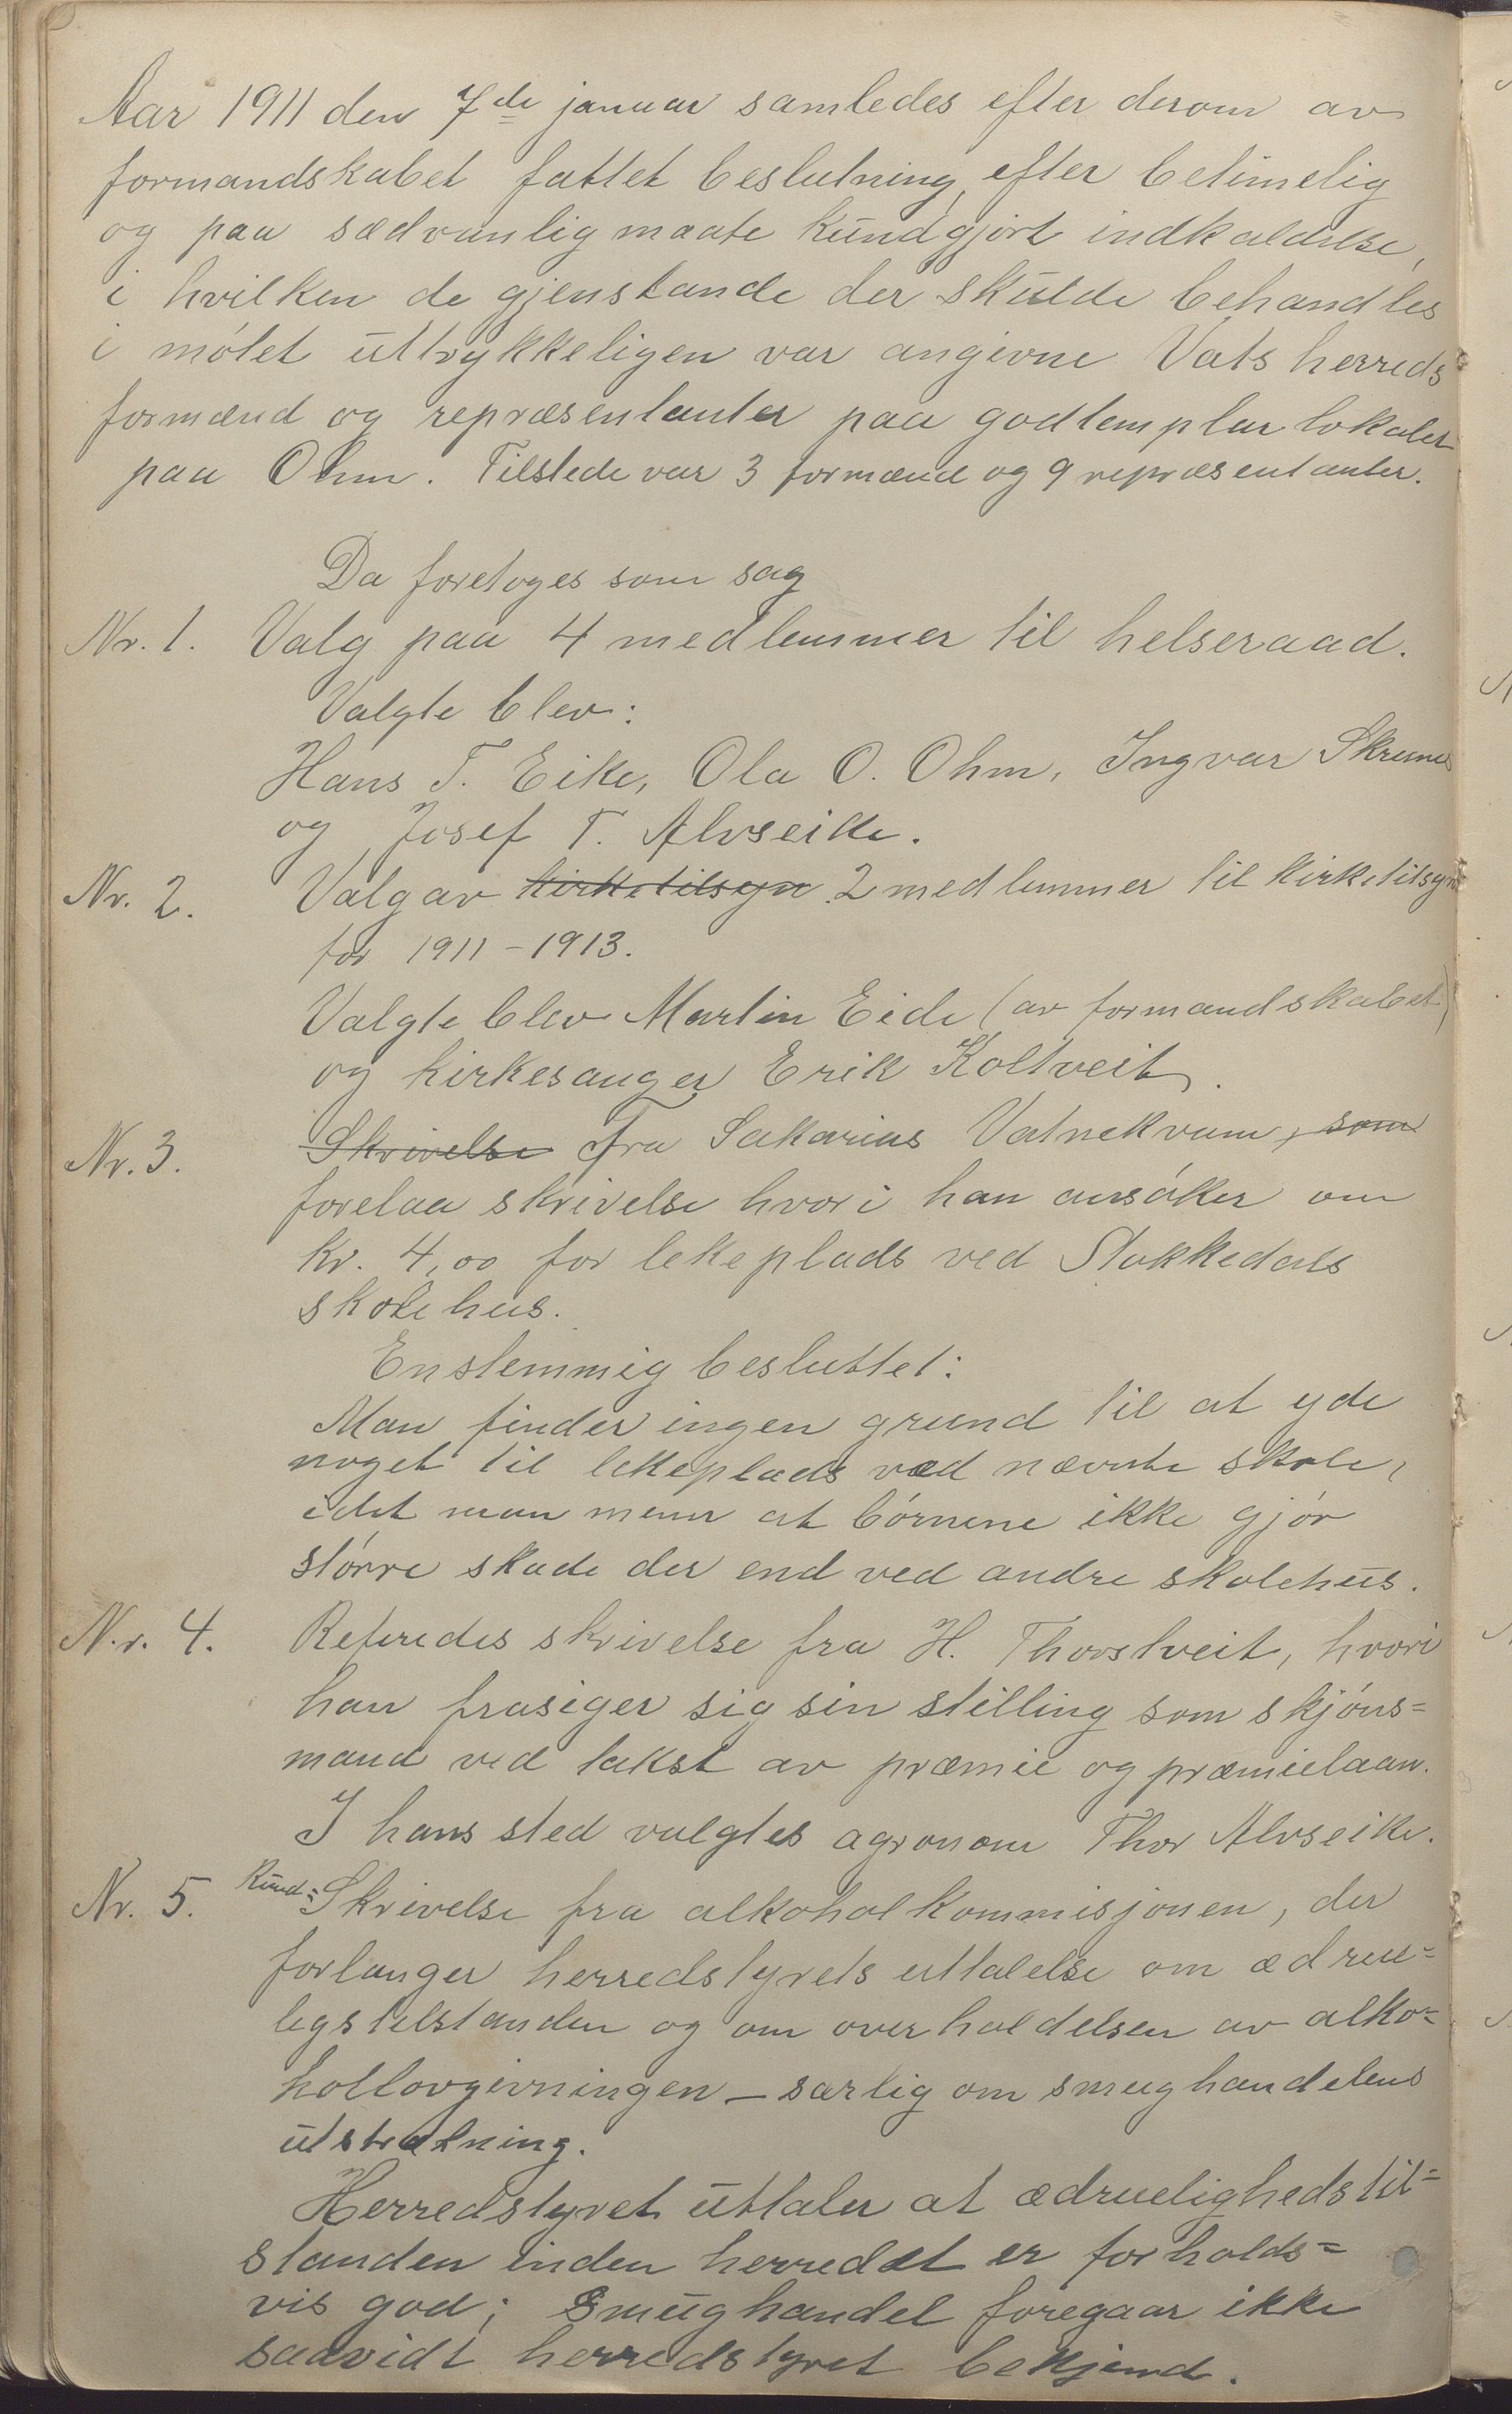 Aar 1911 den 7de januar samledes efter derom av
formandskabet fattet beslutning, efter betimelig
og paa sædvanlig maate kundgjort indkaldelse,
i hvilken de gjenstande der skulde behandles
i møtet uttrykkeligen var angivne Vats herreds
formænd og repræsentanter paa godtemplarlokalet
paa Ohm. Tilstede var 3 formænd og 9 repræsentanter.
Da foretoges som sag
Nr. 1. Valg paa 4 medlemmer til helseraad.
Valgte blev:
Hans T. Eike, Ola O. Ohm, Ingvar
og Josef T. Alvseike.
Nr. 2. Valg av kirketilsyn 2 medlemmer til kirketilsyn
for 1911-1913.
Valgte blev Martin Eide (av formandskabet)
og kirkesanger Erik Koltveit.
Nr. 3. Skrivelse Fra Sakarias Vatnekvam, som
forelaa skrivelse hvori han ansøker om
kr. 4,00 for lekeplads ved Stokkedals
skolehus.
Enstemmig besluttet:
Man finder ingen grund til at yde
noget til lekeplads ved nævnte skole,
idet man mener at børnene ikke gjør
større skade der end ved andre skolehus.
Nr. 4. Refredes skrivelse fra H. Thorstveit, hvori
han frasiger sig sin stilling som skjøns=
mand ved takst av præmie og præmielaan.
I hans sted valgtes agronom Thor Alvseike.
Nr. 5. Rund=Skrivelse fra alkoholkommisjonen, der
forlanger herredstyrets uttalelse om ædrue=
legstilstanden og om overholdelsen av alko=
hollovgivningen – særlig om smughandelens
utstrekning.
Herredstyret uttaler at ædruelighedstil=
standen inden herredet er forholds=
vis god; Smughandel foregaar ikke
saavidt herredstyret bekjend.